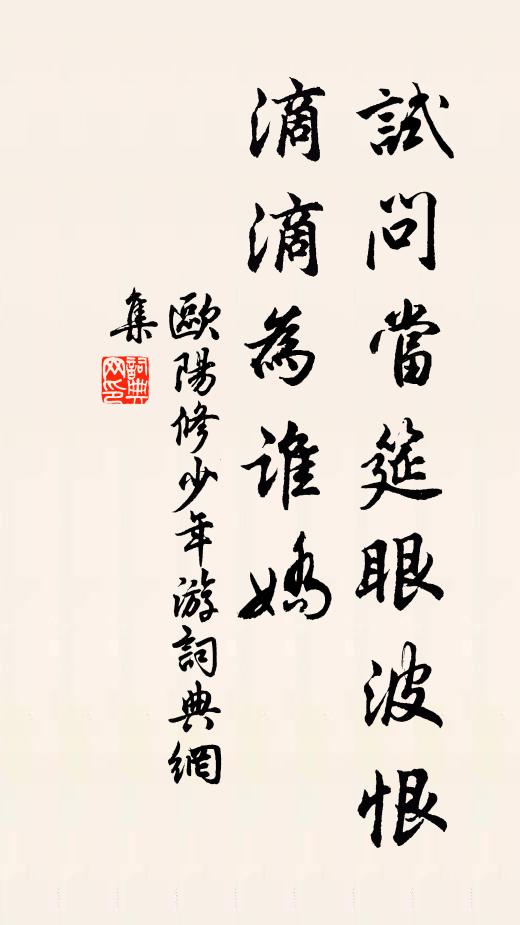 試問當筵眼波恨
滴滴為誰嬌
歐陽修少年游詞典網
集
詞典網印